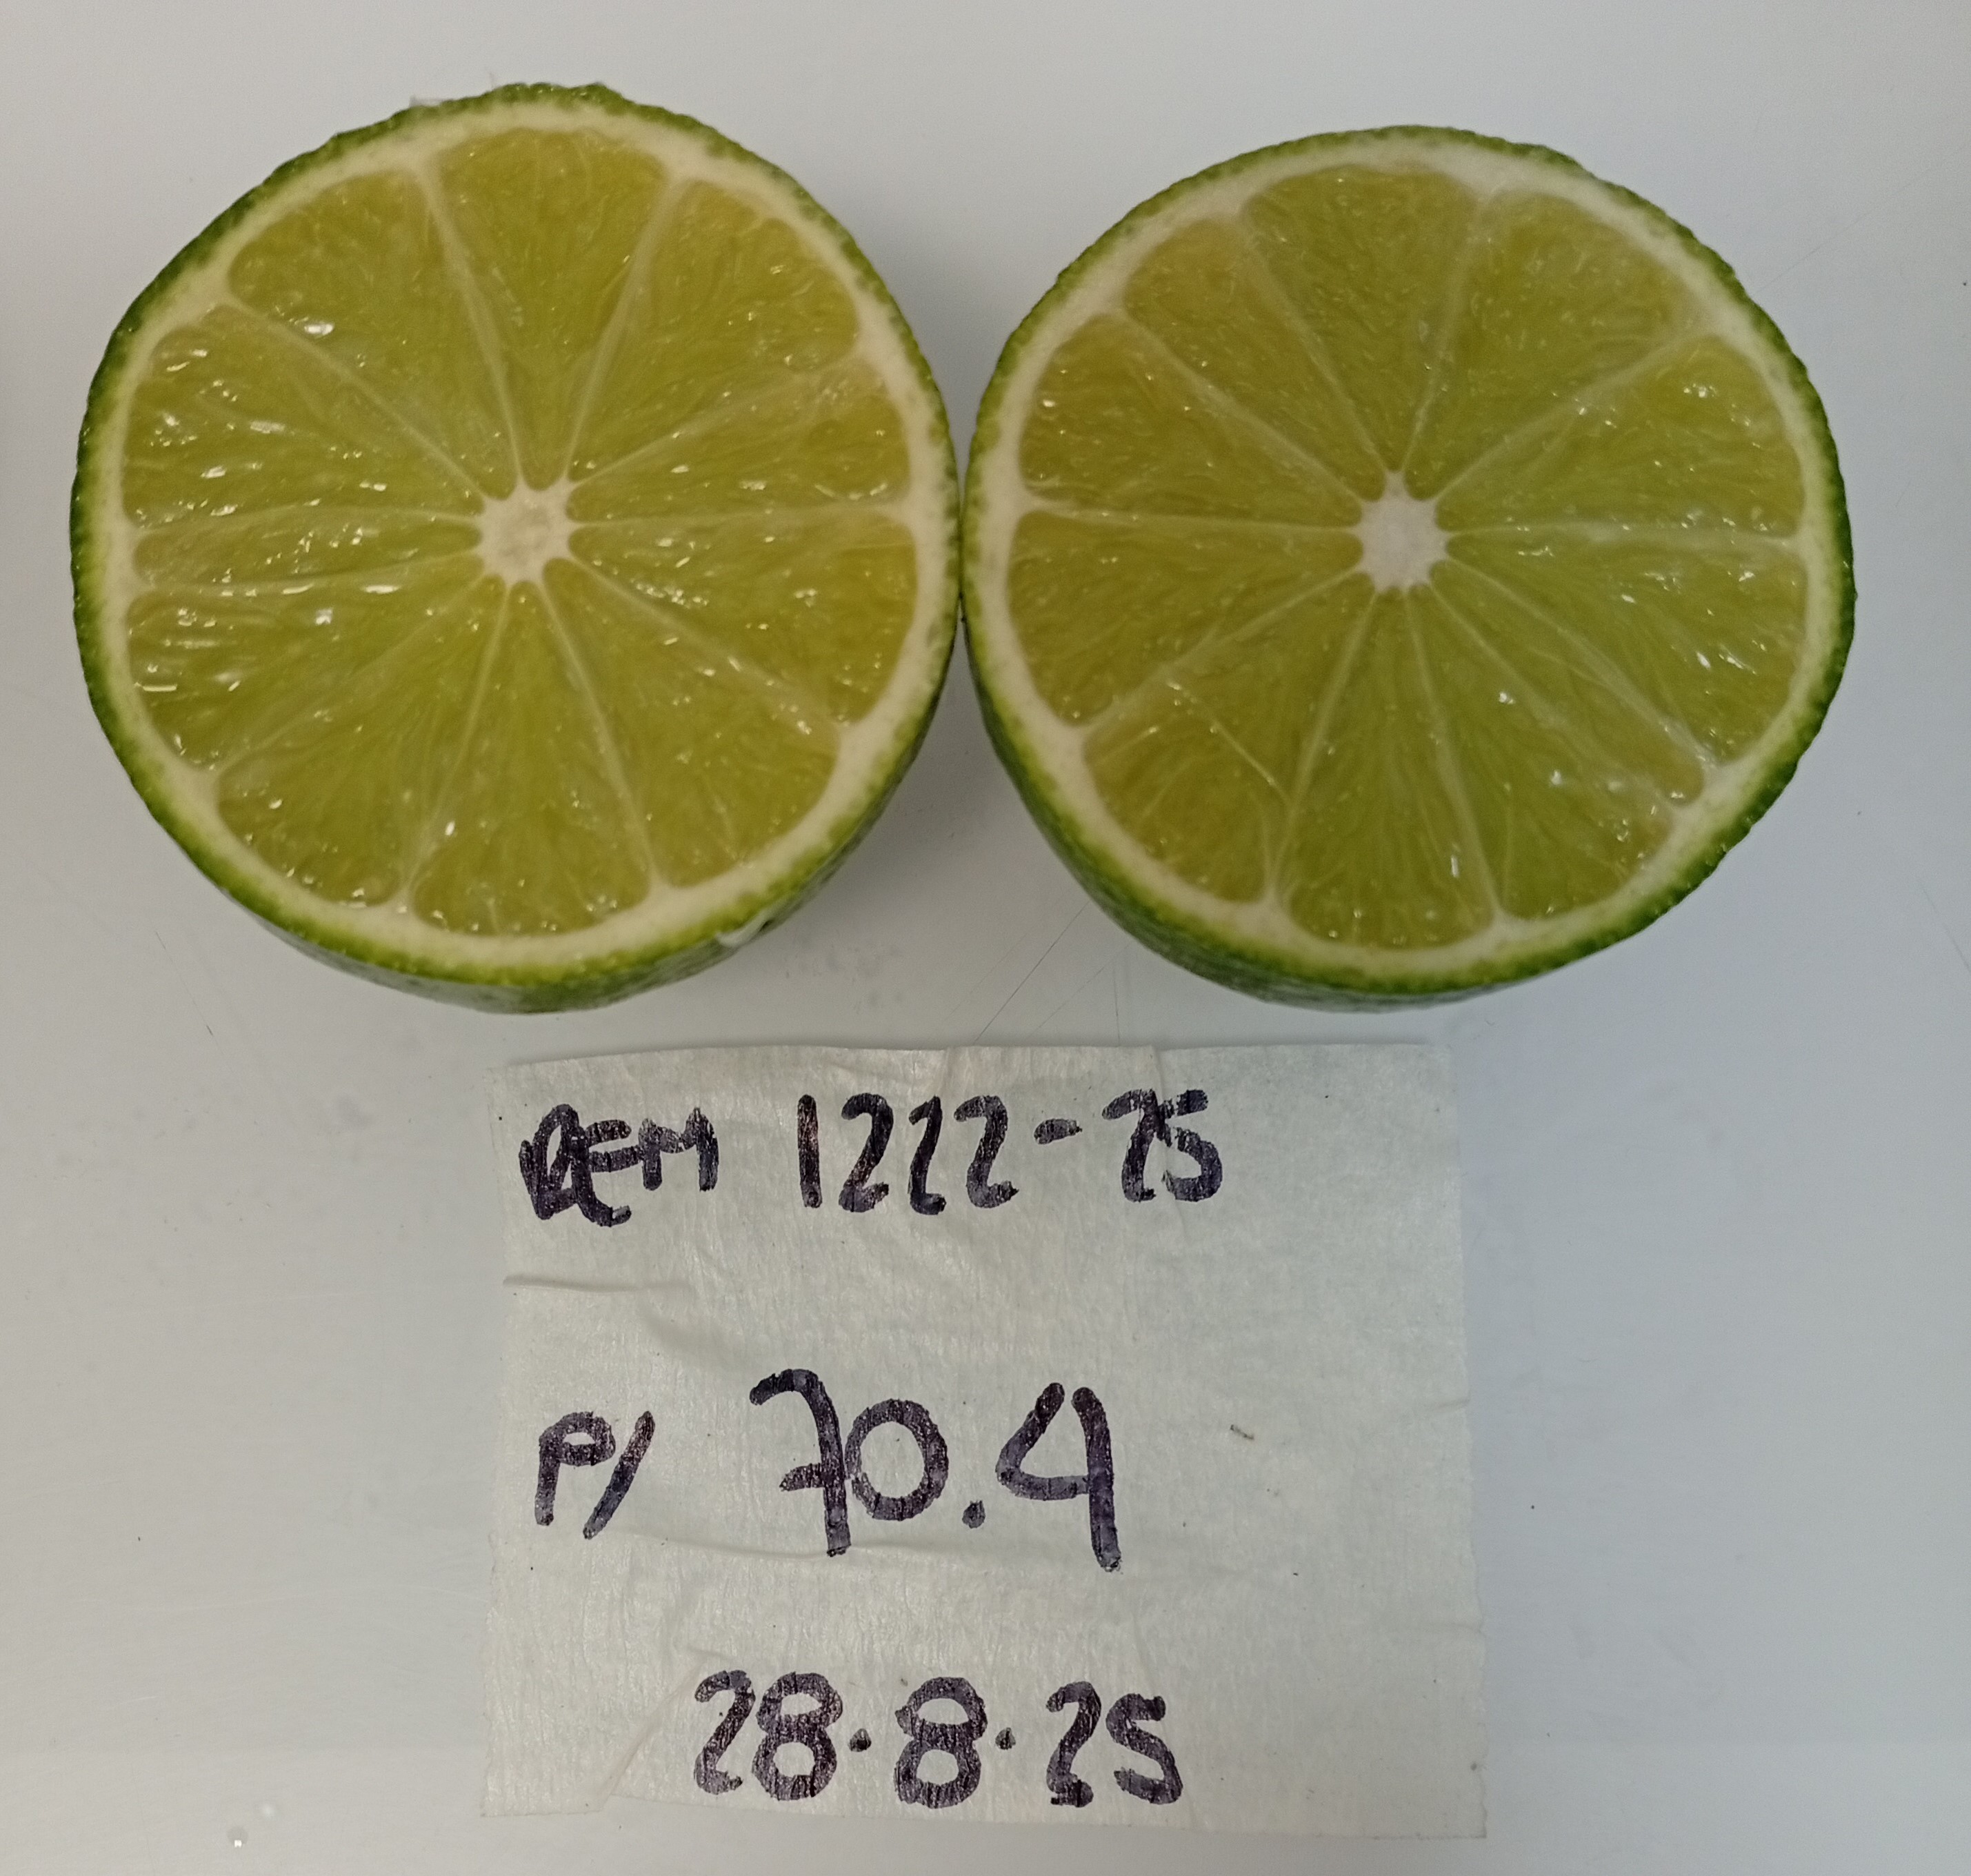 REM 1222-25
P/ 70.4
28.8.25